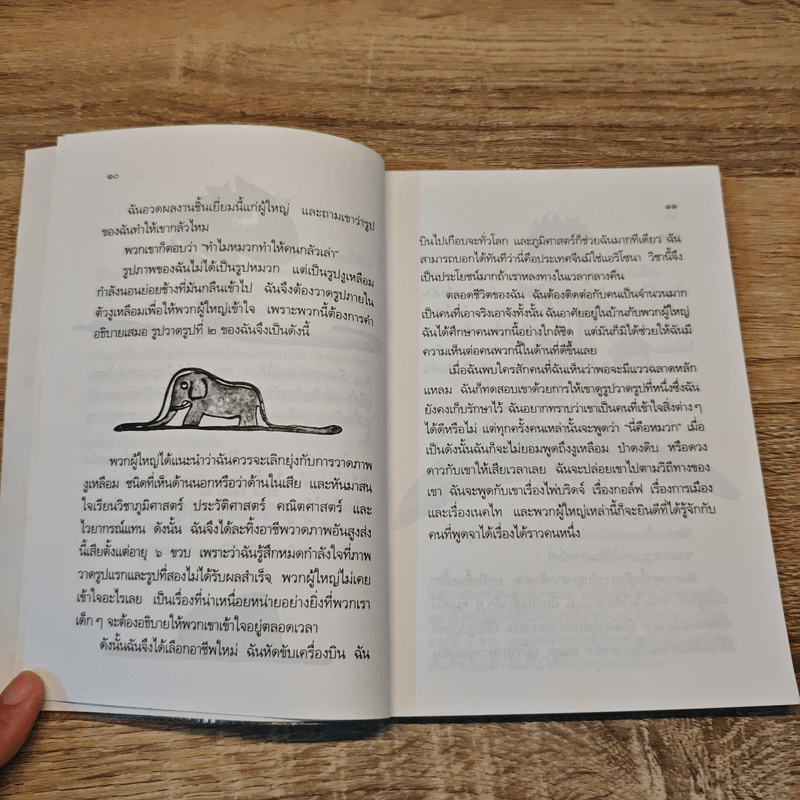 ๑๐
ฉันอวดผลงานชิ้นเยี่ยมนี้แก่ผู้ใหญ่ และถามเขาว่ารูป
ของฉันทำให้เขากลัวไหม
พวกเขาก็ตอบว่า “ทำไมหมวกทำให้คนกลัวเล่า”
รูปภาพของฉันไม่ได้เป็นรูปหมวก แต่เป็นรูปงูเหลือม
กำลังนอนย่อยช้างที่มันกลืนเข้าไป ฉันจึงต้องวาดรูปภายใน
ตัวงูเหลือมเพื่อให้พวกผู้ใหญ่เข้าใจ เพราะพวกนี้ต้องการคำ
อธิบายเสมอ รูปวาดรูปที่ ๒ ของฉันจึงเป็นดังนี้
พวกผู้ใหญ่ได้แนะนำว่าฉันควรจะเลิกยุ่งกับการวาดภาพ
งูเหลือม ชนิดที่เห็นด้านนอกหรือว่าด้านในเสีย และหันมาสน
ใจเรียนวิชาภูมิศาสตร์ ประวัติศาสตร์ คณิตศาสตร์ และ
ไวยากรณ์แทน ดังนั้น ฉันจึงได้ละทิ้งอาชีพวาดภาพอันสูงส่ง
นี้เสียตั้งแต่อายุ ๖ ขวบ เพราะว่าฉันรู้สึกหมดกำลังใจที่ภาพ
วาดรูปแรกและรูปที่สองไม่ได้รับผลสำเร็จ พวกผู้ใหญ่ไม่เคย
เข้าใจอะไรเลย เป็นเรื่องที่น่าเหนื่อยหน่ายอย่างยิ่งที่พวกเรา
เด็ก ๆ จะต้องอธิบายให้พวกเขาเข้าใจอยู่ตลอดเวลา
ดังนั้นฉันจึงได้เลือกอาชีพใหม่ ฉันหัดขับเครื่องบิน ฉัน
๑๑
บินไปเกือบจะทั่วโลก และภูมิศาสตร์ก็ช่วยฉันมากทีเดียว ฉัน
สามารถบอกได้ทันทีว่านี่คือประเทศจีนมิใช่แอริโซนา วิชานี้จึง
เป็นประโยชน์มากถ้าเราหลงทางในเวลากลางคืน
ตลอดชีวิตของฉัน ฉันต้องติดต่อกับคนเป็นจำนวนมาก
เป็นคนที่เอาจริงเอาจังทั้งนั้น ฉันอาศัยอยู่ในบ้านกับพวกผู้ใหญ่
ฉันได้ศึกษาคนพวกนี้อย่างใกล้ชิด แต่มันก็มิได้ช่วยให้ฉันมี
ความเห็นต่อคนพวกนี้ในด้านที่ดีขึ้นเลย
เมื่อฉันพบใครสักคนที่ฉันเห็นว่าพอจะมีแววฉลาดหลัก
แหลม ฉันก็ทดสอบเขาด้วยการให้เขาดูรูปวาดรูปที่หนึ่งซึ่งฉัน
ยังคงเก็บรักษาไว้ ฉันอยากทราบว่าเขาเป็นคนที่เข้าใจสิ่งต่าง ๆ
ได้ดีหรือไม่ แต่ทุกครั้งคนเหล่านั้นจะพูดว่า “นี่คือหมวก” เมื่อ
เป็นดังนั้นฉันก็จะไม่ยอมพูดถึงงูเหลือม ป่าดงดิบ หรือดวง
ดาวกับเขาให้เสียเวลาเลย ฉันจะปล่อยเขาไปตามวิถีทางของ
เขา ฉันจะพูดกับเขาเรื่องไพ่บริดจ์ เรื่องกอล์ฟ เรื่องการเมือง
และเรื่องเนคไท และพวกผู้ใหญ่เหล่านี้ก็จะยินดีที่ได้รู้จักกับ
คนที่พูดจาได้เรื่องได้ราวคนหนึ่ง